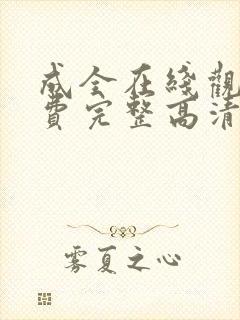 成全在綫觀
費完整高清
雾夏之心